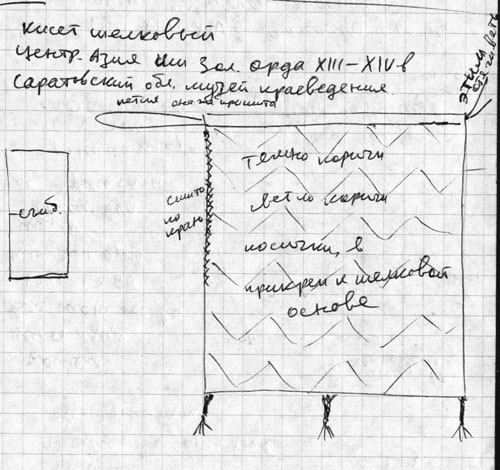 кисет шелковый
центр. Азия или Зол. орда XIII-XIV в
Саратовский обл. музей краеведения
петля она же пришита
этим
стягивать
темно коричн
светло коричн
сшито
по
краю
сгиб.
косички, в
прикреп к шелковой
основе